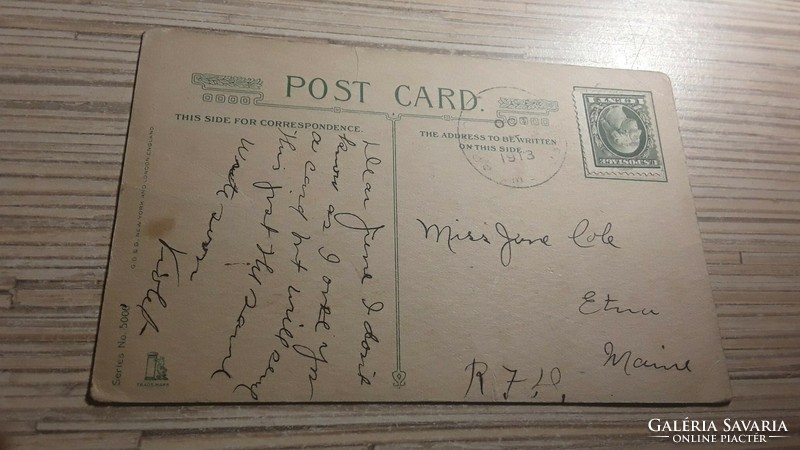 POST CARD.
THIS SIDE FOR CORRESPONDENCE.
THE ADDRESS TO BE WRITTEN
ON THIS SIDE
1913
U.S. POSTAGE
1 CENT 1
Dear June I don't
know as I owe you
a card but will send
this just the same
Write soon
Miss June Cole
Etna
Maine
R.F.D.
Series No. 500
TRADE MARK
GALÉRIA SAVARIA
ONLINE PIACTÉR